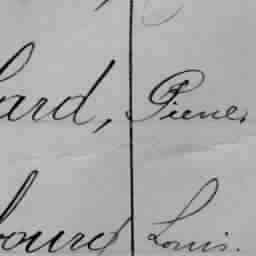 ard, Pierre.
bourg Louis.